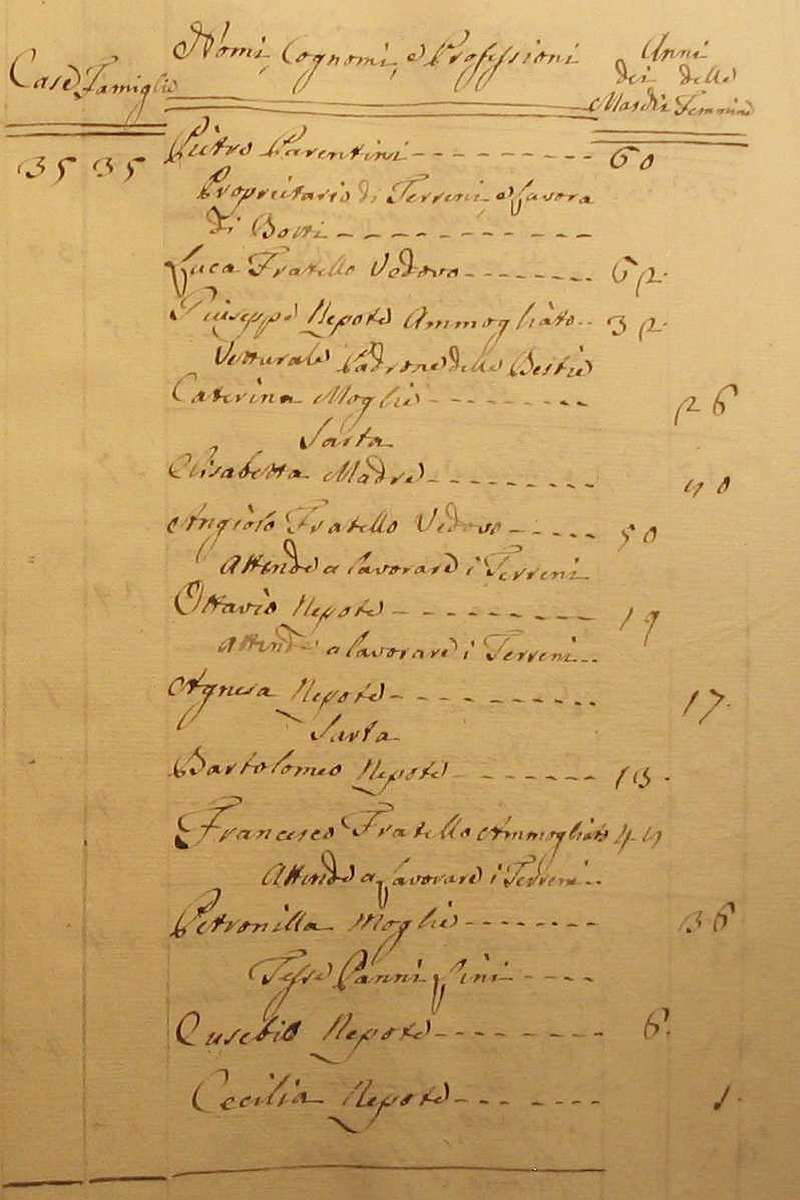 Case Famiglie Nomi, Cognomi, e Professioni Anni
dei delle
Maschi Femmine
35 35 Pietro Parentini 60
Proprietario di Terreni, e lavora
di Botti
Luca Fratello Vedovo 62
Giuseppe Nepote Ammogliato 32
Vetturale Padrone delle Bestie
Caterina Moglie 26
Sarta
Elisabetta Madre 40
Angiolo Fratello Vedovo 50
Attende a lavorare i Terreni
Ottavio Nepote 19
Attende a lavorare i Terreni
Agnesa Nepote 17
Sarta
Bartolomeo Nepote 13
Francesco Fratello Ammogliato 44
Attende a lavorare i Terreni
Petronilla Moglie 36
Tesse Panni fini
Eusebio Nepote 6
Cecilia Nepote 1